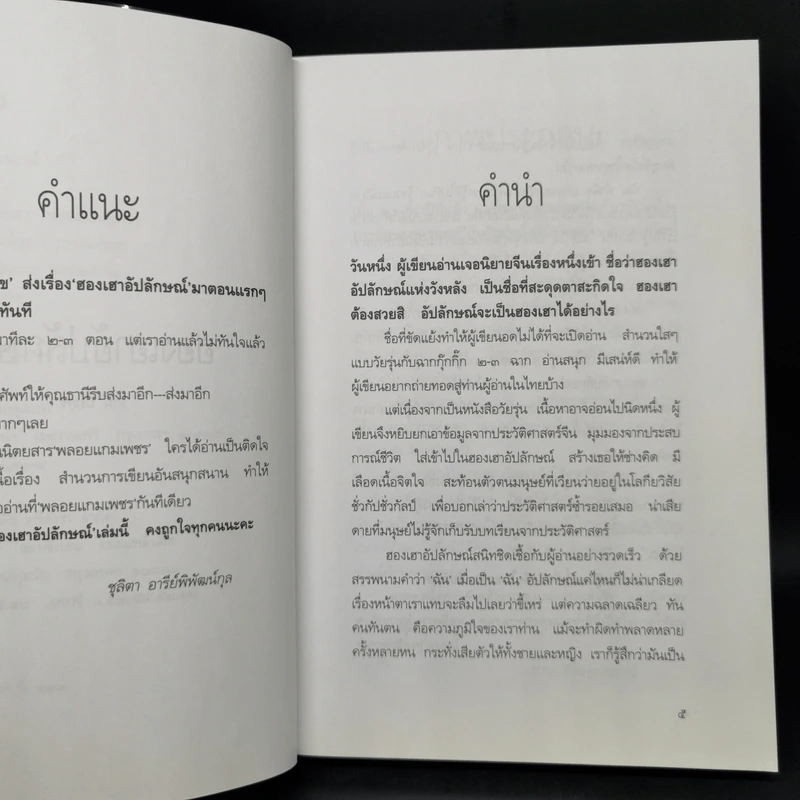 คำแนะ
ข' ส่งเรื่อง'ฮองเฮาอัปลักษณ์'มาตอนแรกๆ
ทันที
มาทีละ ๒-๓ ตอน แต่เราอ่านแล้วไม่ทันใจแล้ว
ศัพท์ให้คุณธานีรีบส่งมาอีก---ส่งมาอีก
ากๆเลย
นนิตยสาร'พลอยแกมเพชร' ใครได้อ่านเป็นติดใจ
นื้อเรื่อง สำนวนการเขียนอันสนุกสนาน ทำให้
ออ่านที่'พลอยแกมเพชร'กันทีเดียว
องเฮาอัปลักษณ์'เล่มนี้ คงถูกใจทุกคนนะคะ
ชุลิตา อารีย์พิพัฒน์กุล
คำนำ
วันหนึ่ง ผู้เขียนอ่านเจอนิยายจีนเรื่องหนึ่งเข้า ชื่อว่าฮองเฮา
อัปลักษณ์แห่งวังหลัง เป็นชื่อที่สะดุดตาสะกิดใจ ฮองเฮา
ต้องสวยสิ อัปลักษณ์จะเป็นฮองเฮาได้อย่างไร
ชื่อที่ขัดแย้งทำให้ผู้เขียนอดไม่ได้ที่จะเปิดอ่าน สำนวนใสๆ
แบบวัยรุ่นกับฉากกุ๊กกิ๊ก ๒-๓ ฉาก อ่านสนุก มีเสน่ห์ดี ทำให้
ผู้เขียนอยากถ่ายทอดสู่ท่านผู้อ่านในไทยบ้าง
แต่เนื่องจากเป็นหนังสือวัยรุ่น เนื้อหาอาจอ่อนไปนิดหนึ่ง ผู้
เขียนจึงหยิบยกเอาข้อมูลจากประวัติศาสตร์จีน มุมมองจากประสบ
การณ์ชีวิต ใส่เข้าไปในฮองเฮาอัปลักษณ์ สร้างเธอให้ช่างคิด มี
เลือดเนื้อจิตใจ สะท้อนตัวตนมนุษย์ที่เวียนว่ายอยู่ในโลกียวิสัย
ชั่วกัปชั่วกัลป์ เพื่อบอกเล่าว่าประวัติศาสตร์ซ้ำรอยเสมอ น่าเสีย
ดายที่มนุษย์ไม่รู้จักเก็บรับบทเรียนจากประวัติศาสตร์
ฮองเฮาอัปลักษณ์สนิทชิดเชื้อกับผู้อ่านอย่างรวดเร็ว ด้วย
สรรพนามคำว่า 'ฉัน' เมื่อเป็น 'ฉัน' อัปลักษณ์แค่ไหนก็ไม่น่าเกลียด
เรื่องหน้าตาเราแทบจะลืมไปเลยว่าขี้เหร่ แต่ความฉลาดเฉลียว ทัน
คนทันตน คือความภูมิใจของเราท่าน แม้จะทำผิดทำพลาดหลาย
ครั้งหลายหน กระทั่งเสียตัวให้ทั้งชายและหญิง เราก็รู้สึกว่ามันเป็น
๕